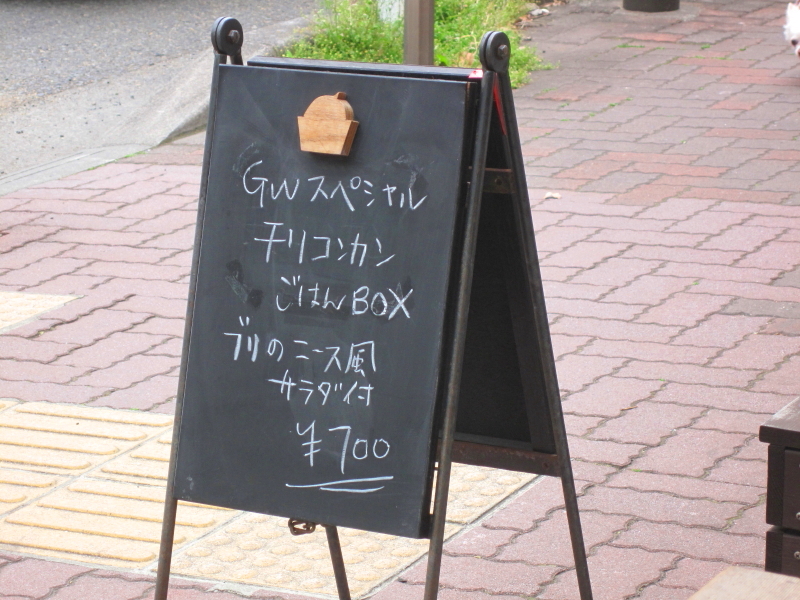 GWスペシャル
チリコンカン
ごはんBOX
ブリのニース風
サラダ付
¥700